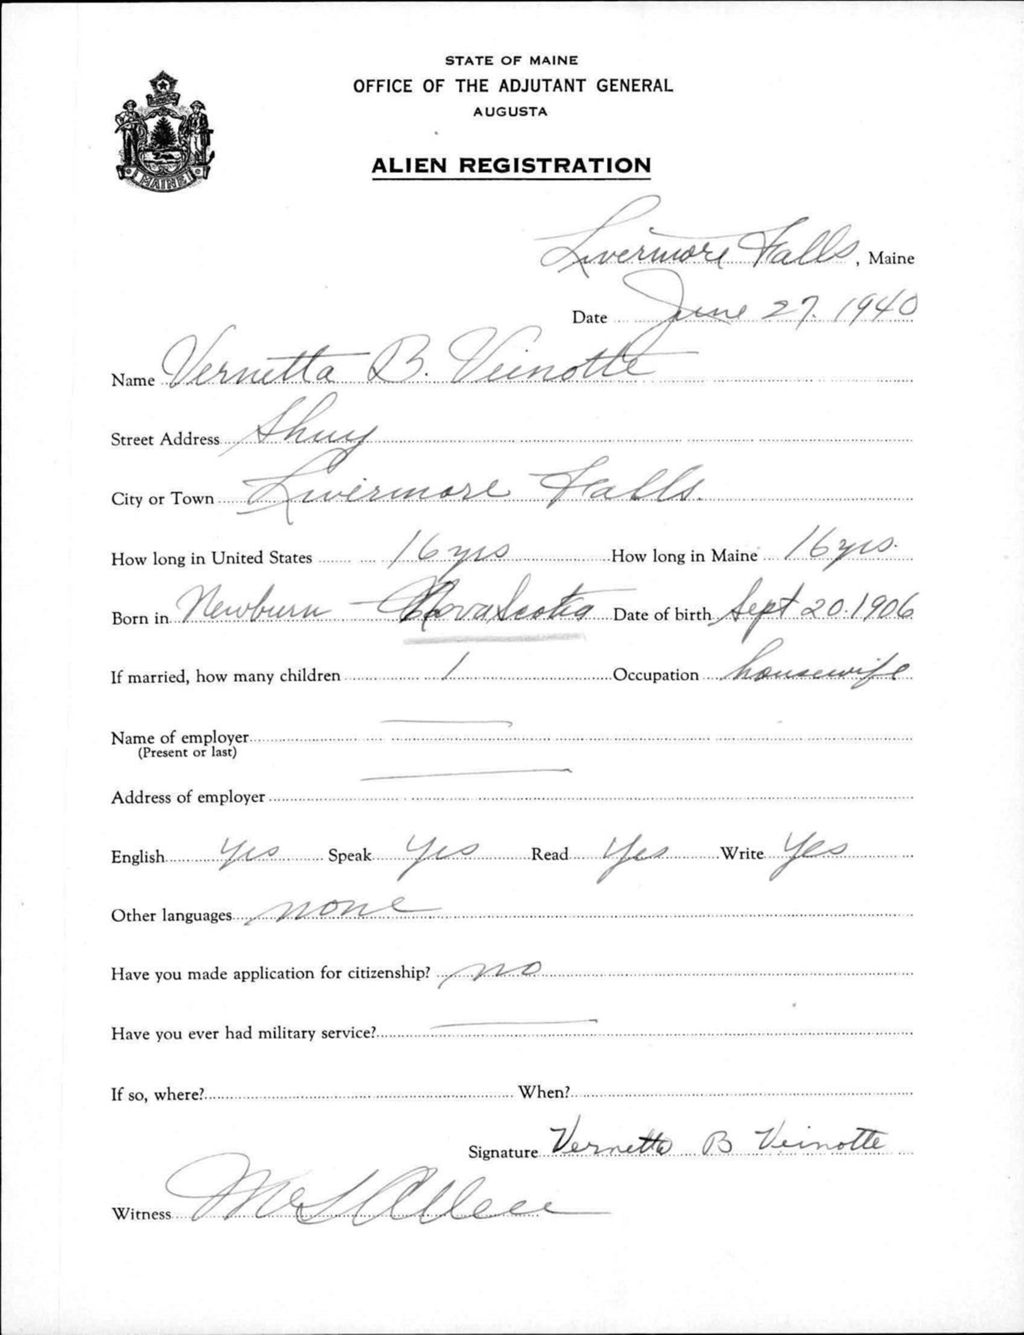 STATE OF MAINE
OFFICE OF THE ADJUTANT GENERAL
AUGUSTA
MAINE
ALIEN REGISTRATION
Livermore Falls, Maine
Date June 27, 1940
Name Vernetta B. Veinotte
Street Address Shuy
City or Town Livermore Falls.
How long in United States 16 yrs How long in Maine 16 yrs.
Born in Newburn - Nova Scotia Date of birth Sept 20. 1906
If married, how many children 1 Occupation housewife
Name of employer
(Present or last)
Address of employer
English Yes Speak Yes Read Yes Write Yes
Other languages none
Have you made application for citizenship? no
Have you ever had military service?
If so, where? When?
Signature Vernetta B Veinotte
Witness